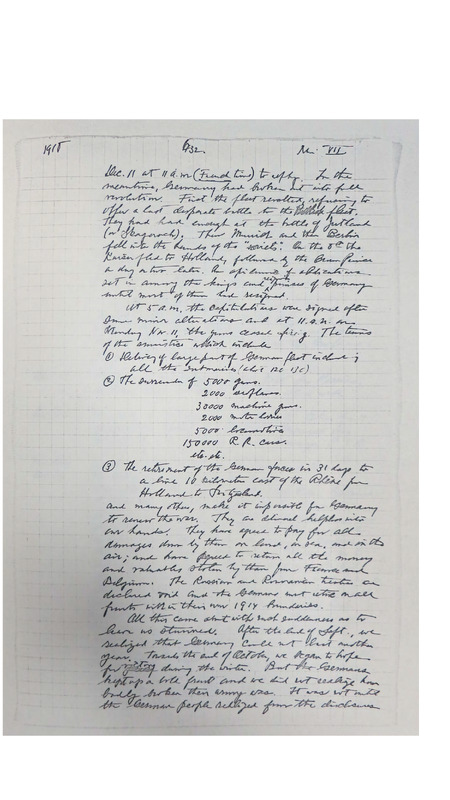 1918 632. No. VII
Dec. 11 at 11 a.m. (French time) to reply. In the
meantime, Germany had broken out into full
revolution. First the fleet revolted, refusing to
offer a last desperate battle to the British fleet.
They had had enough at the battle of Jutland
(or Skagerack). Then Munich and then Berlin
fell into the hands of the "soviets". On the 9th the
Kaiser fled to Holland, followed by the Crown Prince
a day or two later. An epidemic of abdications
set in among the kings and princes of Germany
until most of them had resigned.
At 5 a.m. the capitulations were signed after
some minor alterations and at 11 a.m. on
Monday Nov 11, the guns ceased firing. The terms
of the armistice which include
① Delivery of large part of German fleet including
all the submarines
② The surrender of 5000 guns.
2000 airplanes.
30000 machine guns.
2000 motor lorries
5000 locomotives
150000 R.R. cars.
etc. etc.
③ The retirement of the German forces in 31 days to
a line 10 kilometres east of the Rhine from
Holland to Switzerland.
and many other, make it impossible for Germany
to renew the war. They are almost helpless in
our hands. They have agreed to pay for all
damages done by them on land, on sea, and in the
air; and have agreed to return all the money
and valuables stolen by them from France and
Belgium. The Russian and Roumanian treaties are
declared void and the Germans must retire on all
fronts within their own 1914 boundaries.
All this came about with such suddenness as to
leave us stunned. After the end of Sept., we
realized that Germany could not last another
year. Towards the end of October we began to hope
for victory during the winter. But the Germans
kept up a bold front and we did not realize how
badly broken their army was. It was not until
the German people realized from the disclosures